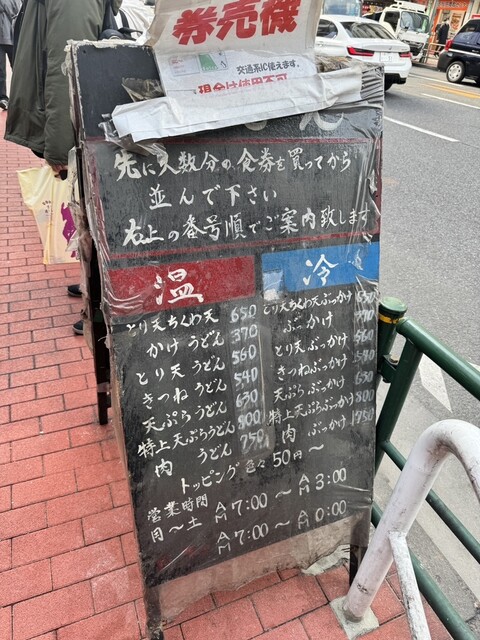 券売機
交通系IC使えます。
現金は使用不可
先に人数分の食券を買ってから
並んで下さい
右上の番号順でご案内致します
温
とり天ちくわ天 650
かけうどん 370
とり天うどん 560
きつねうどん 540
天ぷらうどん 630
特上天ぷらうどん 800
肉うどん 750
冷
とり天ちくわ天ぶっかけ 650
ぶっかけ 370
とり天ぶっかけ 560
きつねぶっかけ 540
天ぷらぶっかけ 630
特上天ぷらぶっかけ 800
肉ぶっかけ 750
トッピング色々50円〜
営業時間
月〜土
AM7:00〜AM3:00
AM7:00〜AM0:00